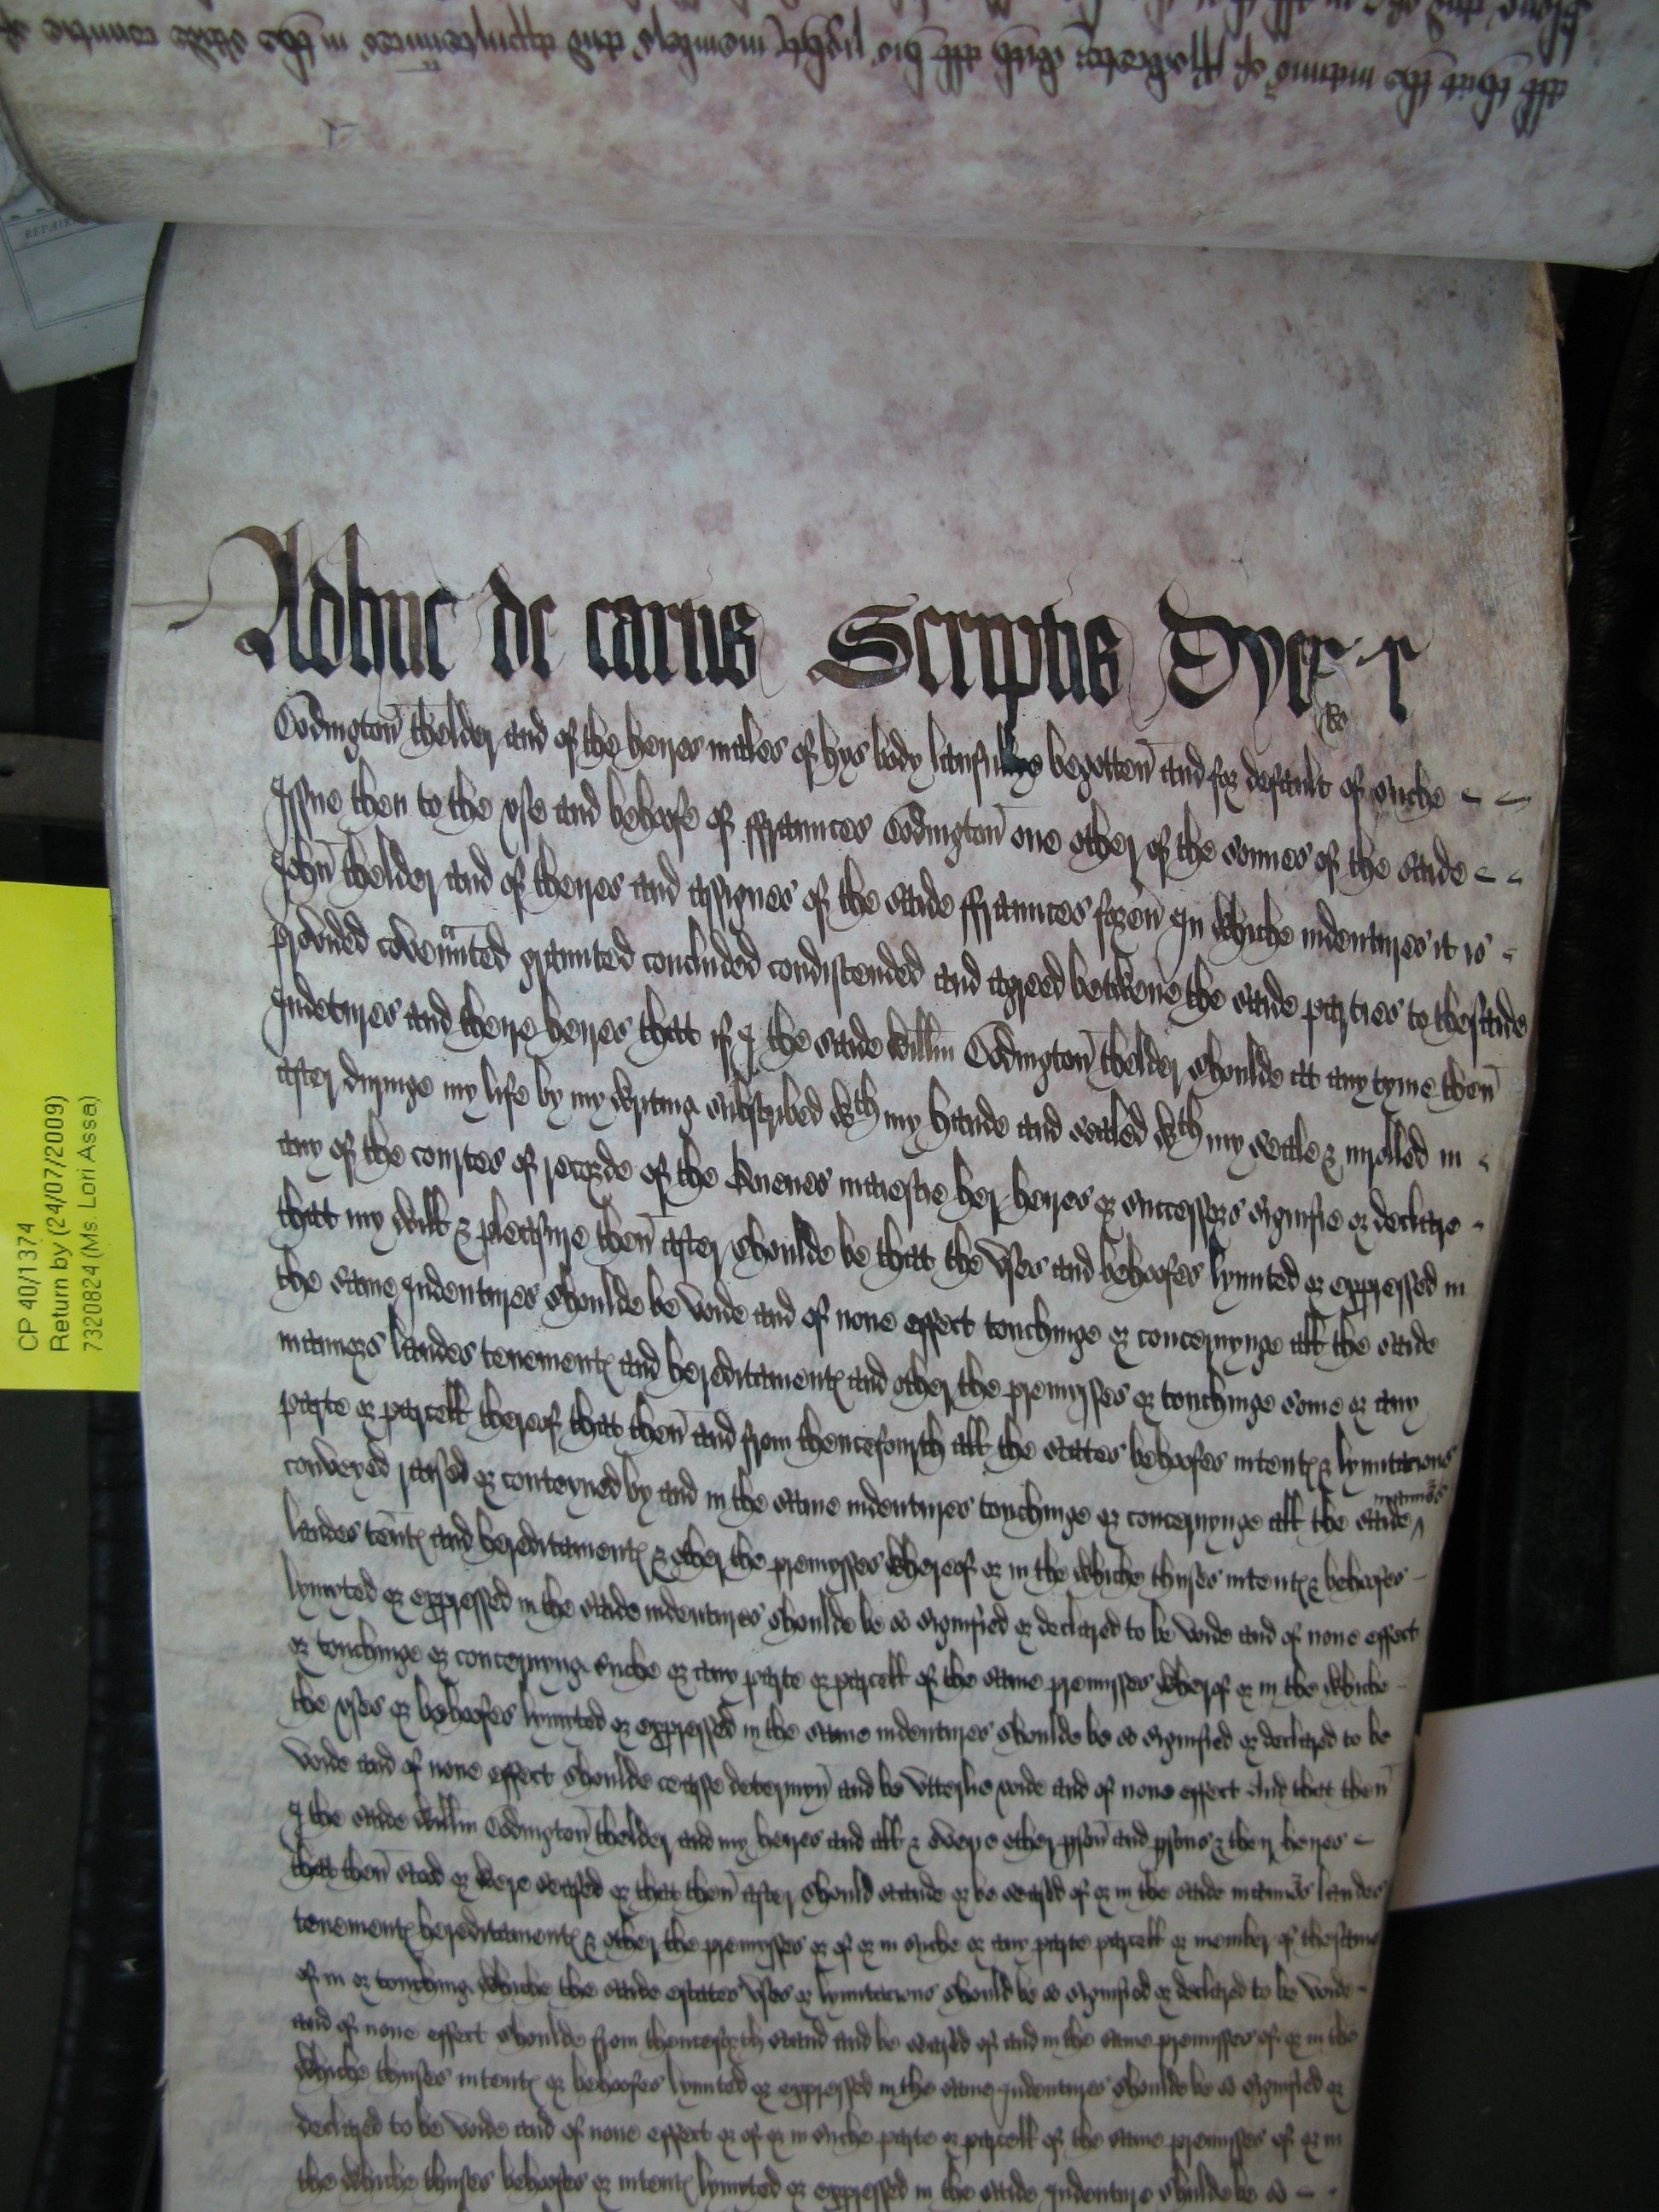 all that the mannor of Assheton with all his right members and appurtenances in the saide countie of
REPAIR
CP 40/1374
Return by (24/07/2009)
7320824 (Ms. Lori Assa)
Adhuc de cartis Scriptis Dyer r
Ro
Codington thelder and of the heires males of hys body laufullye begotten and for default of suche
Issue then to the vse and behoofe of ffraunces Codington one other of the sonnes of the saide
John thelder and of theires and assignes of the saide ffraunces forev In whiche indentures it is
provided covenanted graunted concluded condiscended and agreed betwene the saide parties to thesaide
Indetures and theire heires that if I the saide Willm Codington thelder shoulde at any tyme then
after duringe my life by my writing subscribed wth my hande and sealed wth my seale & inrolled in
any of the courtes of recorde of the Quenes maiestie her heires or successors signifie or declare
that my will & pleasure then after shoulde be that the vses and behoofes lymited or expressed in
the same Indentures shoulde be voide and of none effect touchinge or concernynge all the saide
mannors landes tenements and hereditaments and other the premysses or touchinge some or any
parte or parcell thereof that then and from thencefourth all the states behoofes intents & lymitacions
conveyed raised or conteyned by and in the same indentures touchinge or concernynge all the saide mannors
landes tents and hereditaments & other the premysses whereof or in the whiche thuses intents & behoofes
lymyted or expressed in the saide indentures shoulde be so signified or declared to be voide and of none effect
or touchinge or concernyng suche or any parte or parcell of the same premisses wherof or in the whiche
the vses or behoofes lymyted or expressed in the same indentures shoulde be so signified or declared to be
voide and of none effect shoulde ceasse determyn and be vtterlie voide and of none effect And that then
I the saide Willm Codington thelder and my heires and all & every other pson and psons & their heires
that then stood or were seased or that then after should stande or be seased of or in the saide mannors landes
tenements hereditaments & other the premysses or of or in suche or any parte parcell or member of thesame
of in or touching whiche the saide estates vses or lymitacions should be so signified or declared to be voide
and of none effect shoulde from thenceforth stand and be seased of and in the same premisses of or in the
whiche thuses intents or behoofes lymited or expressed in the same Indentures shoulde be so signified or
declared to be voide and of none effect or of or in suche parte or parcell of the same premisses of or in
the whiche thuses behoofes or intents lymyted or expressed in the saide Indenture shulde be so